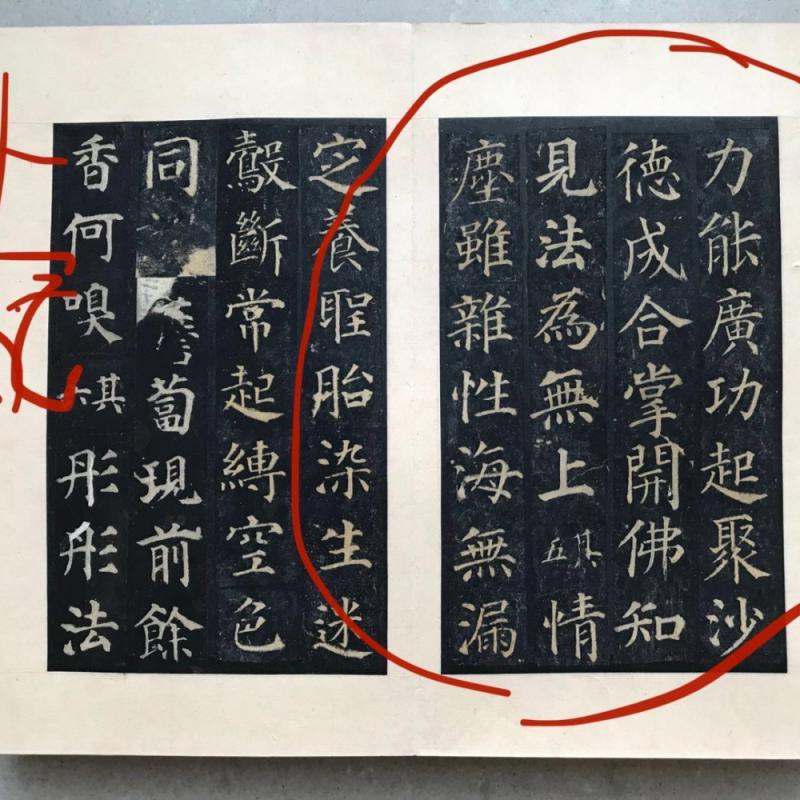 力能廣功起聚沙
德成合掌開佛知
見法為無上其五情
塵雖雜性海無漏
定養聖胎染生迷
鷇斷常起縛空色
同蔔現前餘
香何嗅其六彤彤法